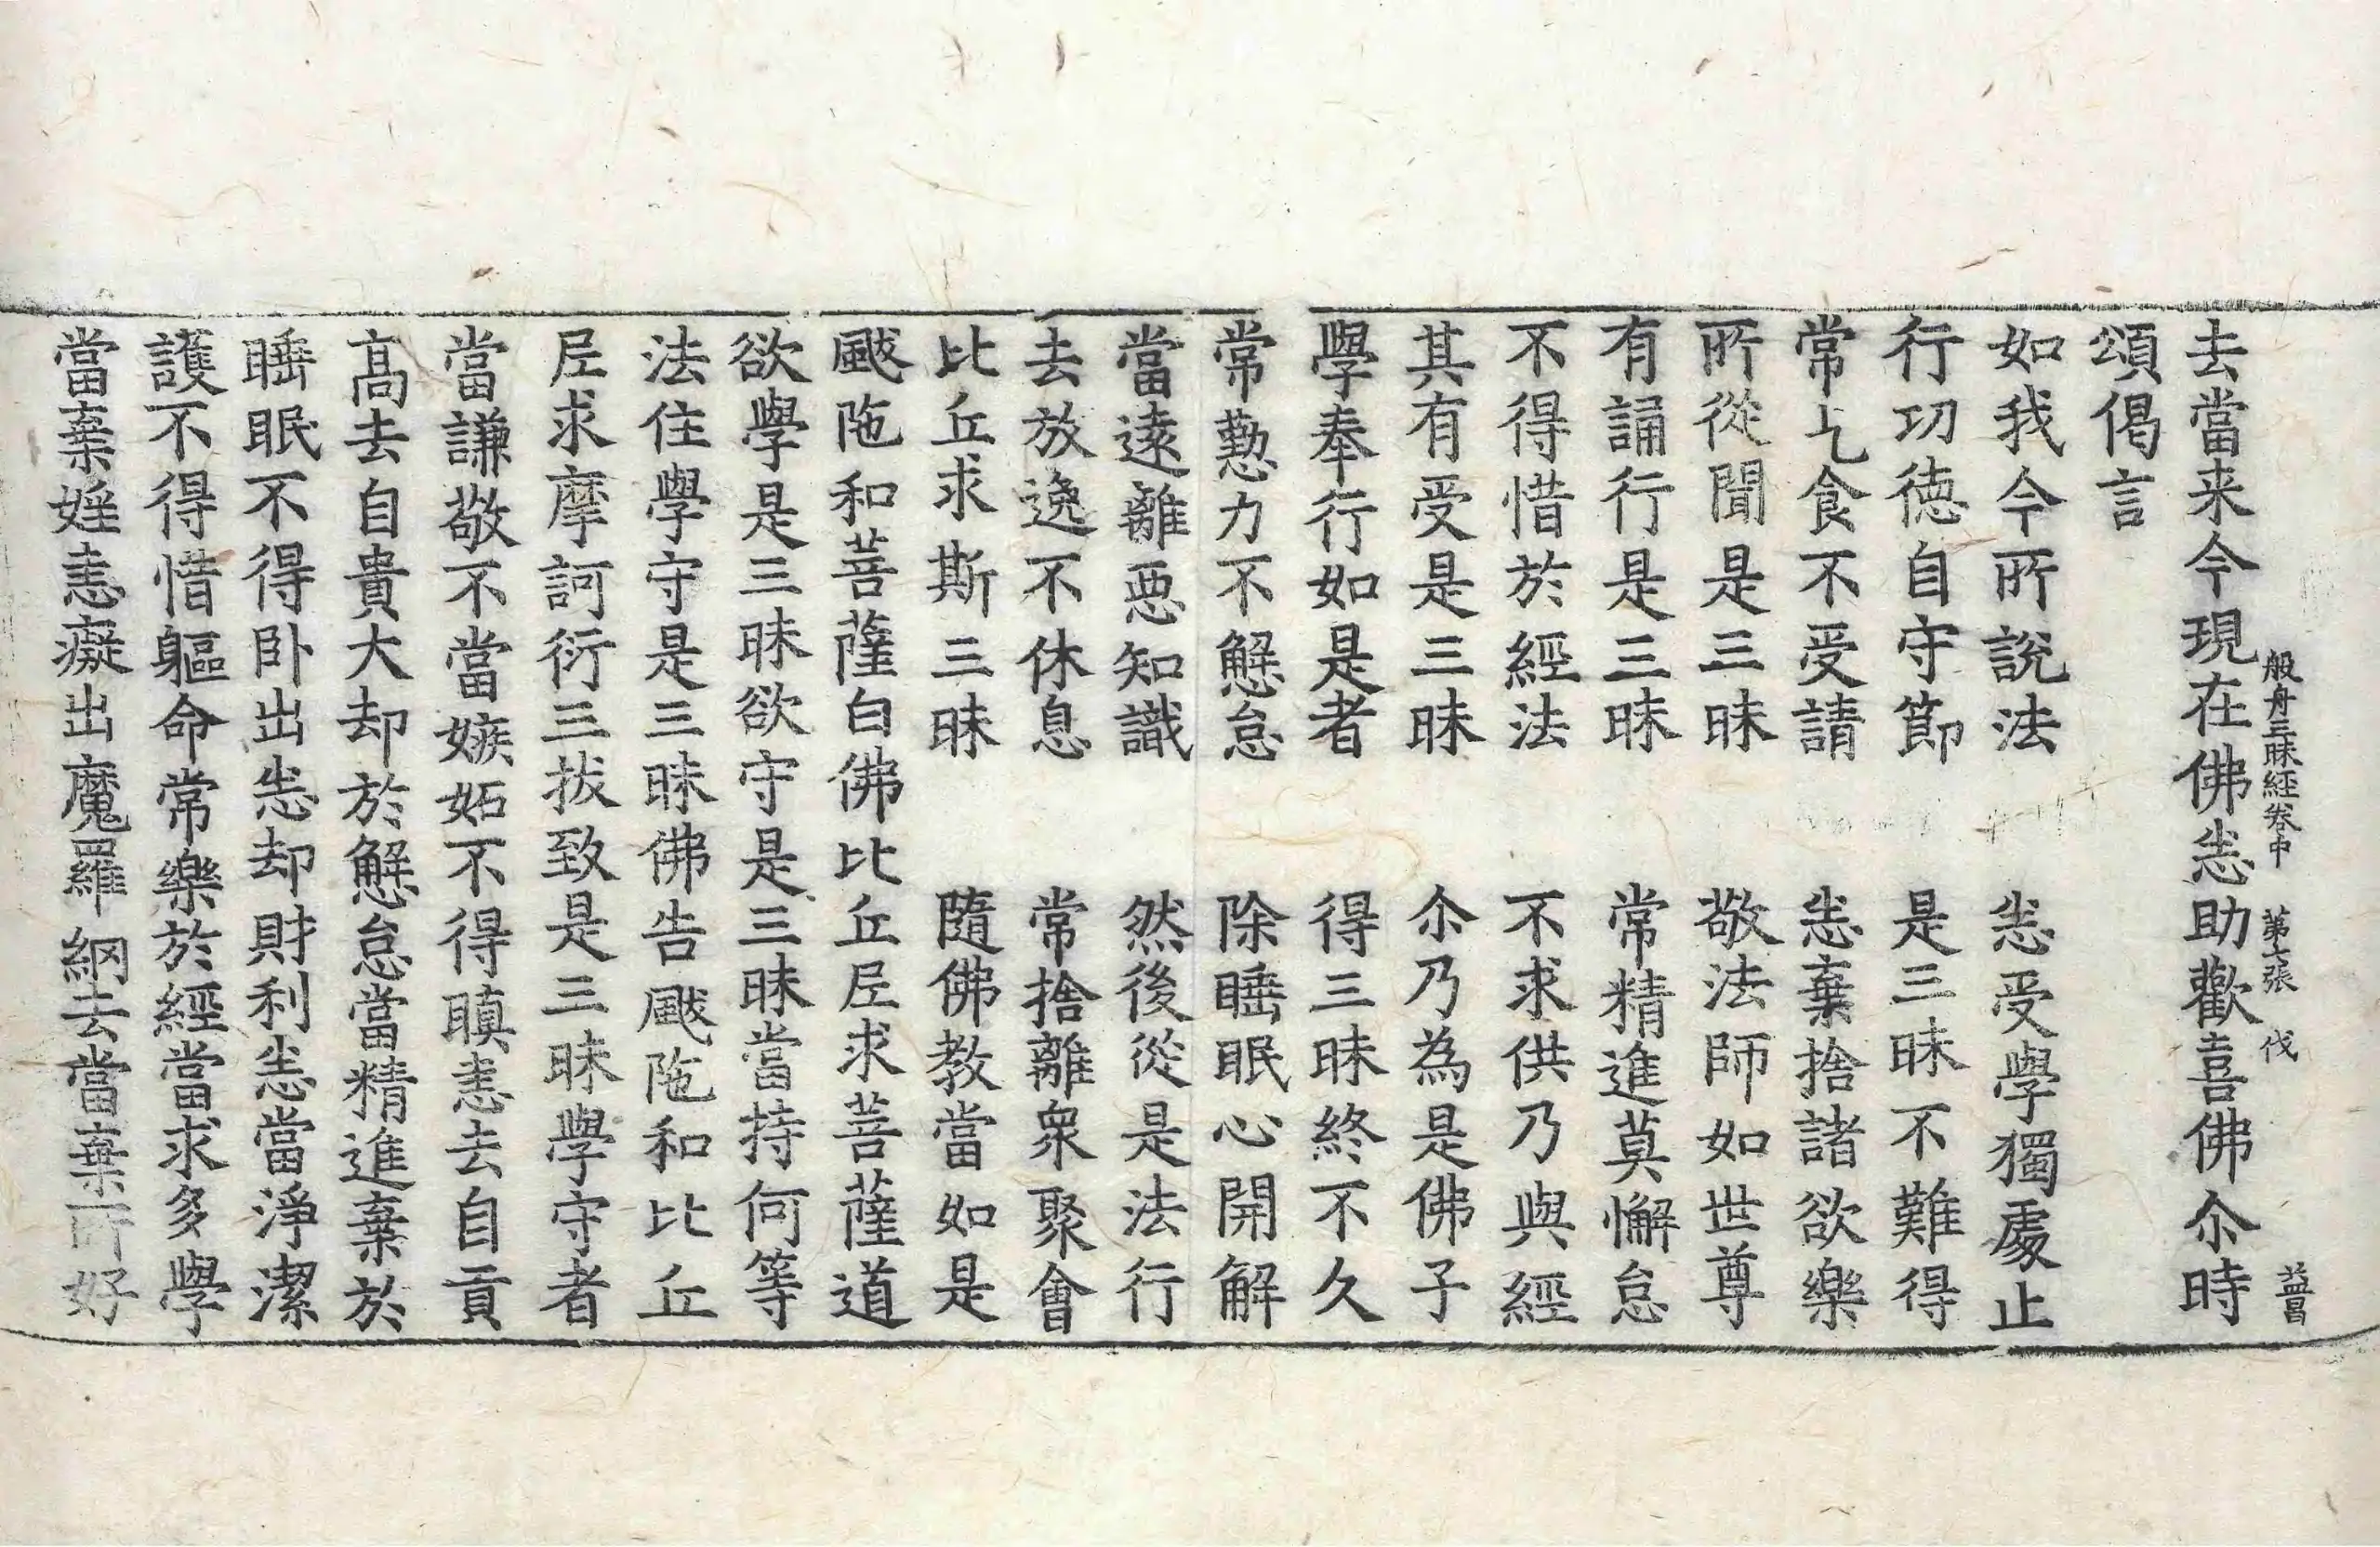 般舟三昧經卷中　第七張　伐　益昌
去當来今現在佛恙助歡喜佛尒時
頌偈言
如我今所說法　恙受學獨處止
行功徳自守節　是三昧不難得
常乞食不受請　恙棄捨諸欲樂
所從聞是三昧　敬法師如世尊
有誦行是三昧　常精進莫懈怠
不得惜於經法　不求供乃與經
其有受是三昧　尒乃為是佛子
學奉行如是者　得三昧終不久
常懃力不懈怠　除睡眠心開解
當遠離惡知識　然後從是法行
去放逸不休息　常捨離衆聚會
比丘求斯三昧　隨佛教當如是
颰陁和菩薩白佛比丘𡰱求菩薩道
欲學是三昧欲守是三昧當持何等
法住學守是三昧佛告颰陁和比丘
𡰱求摩訶衍三拔致是三昧學守者
當謙敬不當嫉妬不得瞋恚去自貢
髙去自貴大却於懈怠當精進棄於
睡眠不得卧出恙却財利恙當淨潔
護不得惜軀命常樂於經當求多學
當棄婬恚癡出魔羅網去當棄所好